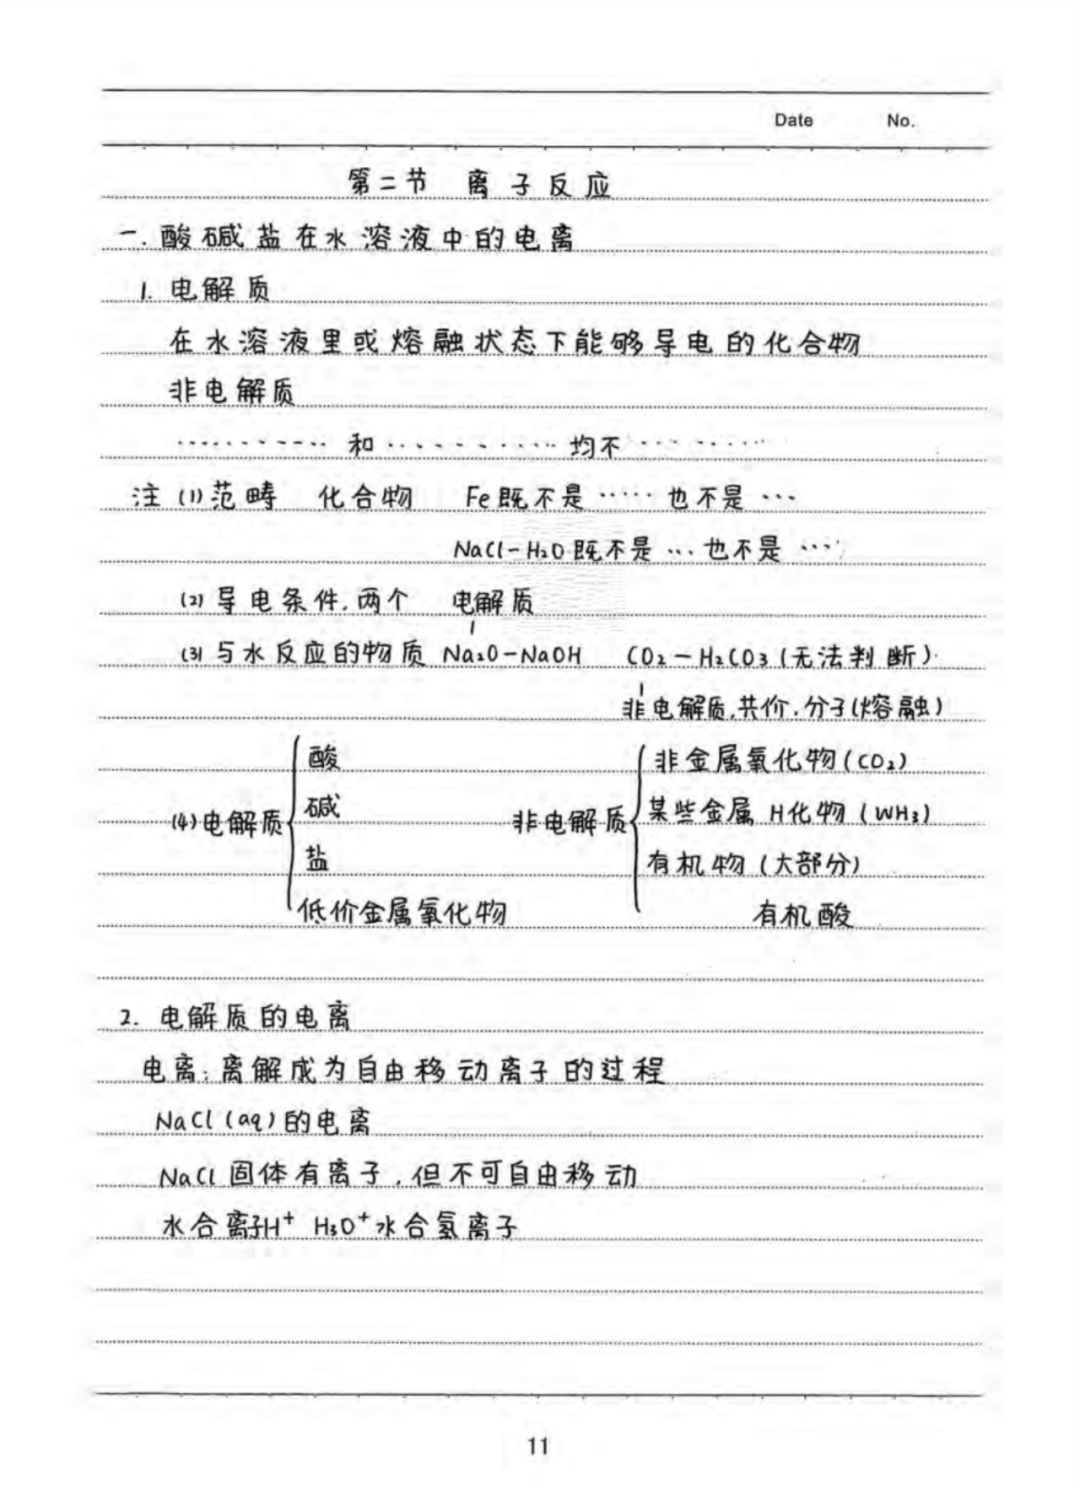 Date No.
第二节 离子反应
一.酸碱盐在水溶液中的电离
1. 电解质
在水溶液里或熔融状态下能够导电的化合物
非电解质
………… 和 ………… 均不 …………
注 (1)范畴 化合物 Fe既不是 …… 也不是 …
NaCl-H₂O既不是 … 也不是 …
(2)导电条件.两个 电解质
(3)与水反应的物质 Na₂O-NaOH CO₂-H₂CO₃(无法判断)
非电解质.共价.分子(熔融)
酸 非金属氧化物(CO₂)
(4)电解质 碱 非电解质 某些金属H化物(WH₃)
盐 有机物(大部分)
低价金属氧化物 有机酸
2. 电解质的电离
电离:离解成为自由移动离子的过程
NaCl(aq)的电离
NaCl固体有离子,但不可自由移动
水合离子H⁺ H₃O⁺水合氢离子
11